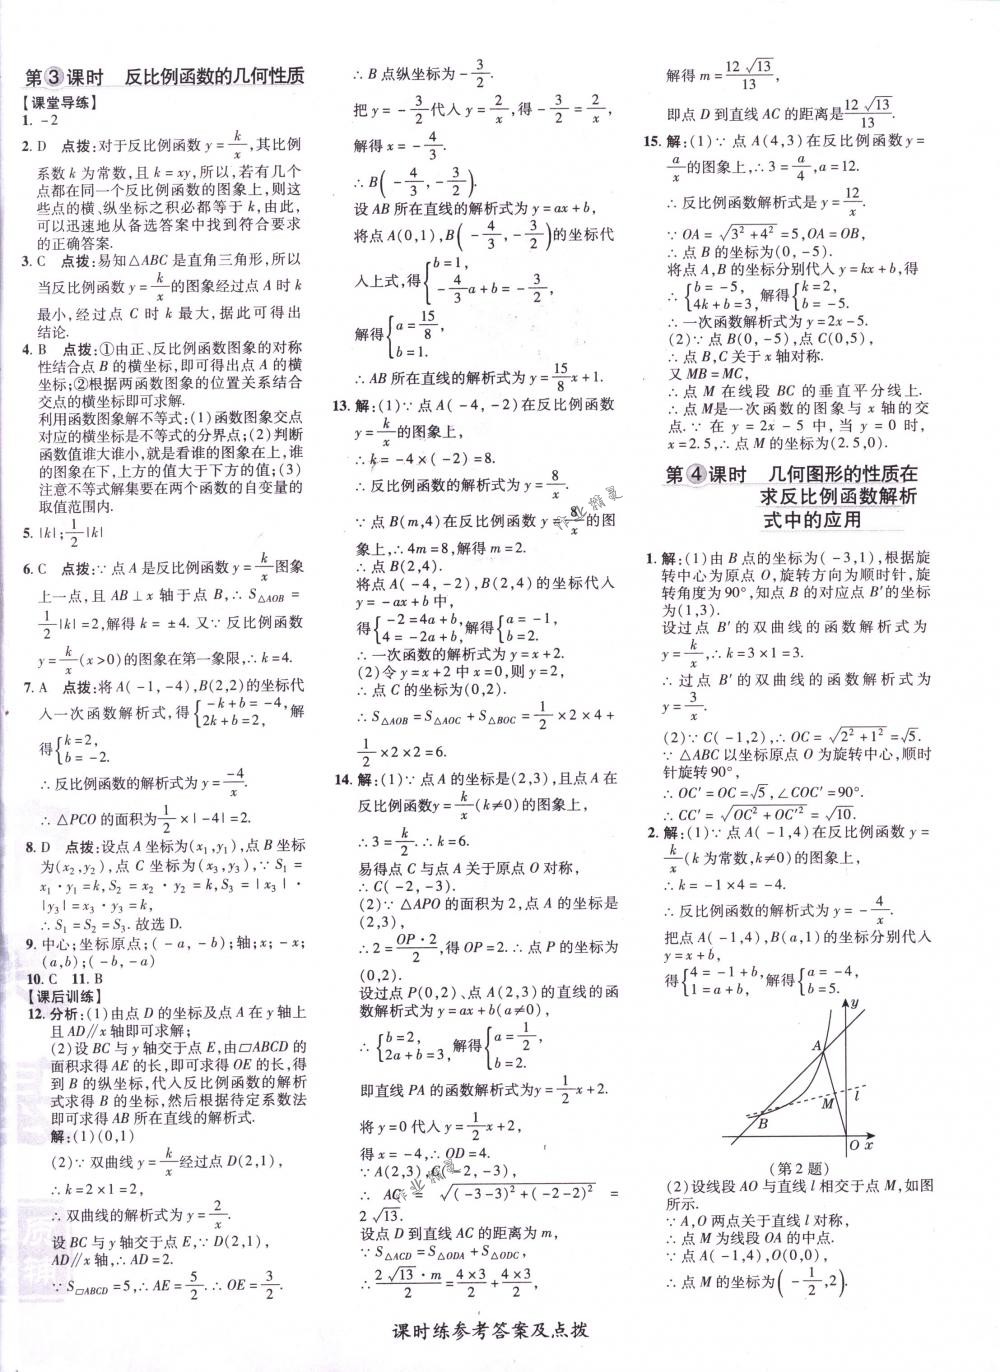 第③课时 反比例函数的几何性质
【课堂导练】
1. -2
2. D 点拨:对于反比例函数 y = k/x ,其比例
系数 k 为常数,且 k = xy,所以,若有几个
点都在同一个反比例函数的图象上,则这
些点的横、纵坐标之积必都等于 k,由此,
可以迅速地从备选答案中找到符合要求
的正确答案.
3. C 点拨:易知△ABC 是直角三角形,所以
当反比例函数 y = k/x 的图象经过点 A 时 k
最小,经过点 C 时 k 最大,据此可得出
结论.
4. B 点拨:①由正、反比例函数图象的对称
性结合点 B 的横坐标,即可得出点 A 的横
坐标;②根据两函数图象的位置关系结合
交点的横坐标即可求解.
利用函数图象解不等式:(1)函数图象交点
对应的横坐标是不等式的分界点;(2)判断
函数值谁大谁小,就是看谁的图象在上,谁
的图象在下,上方的值大于下方的值;(3)
注意不等式解集要在两个函数的自变量的
取值范围内.
5. |k|; 1/2|k|
6. C 点拨:∵点 A 是反比例函数 y = k/x 图象
上一点,且 AB⊥x 轴于点 B,∴S△AOB =
1/2|k| =2,解得 k = ±4. 又∵反比例函数
y = k/x (x>0)的图象在第一象限,∴k=4.
7. A 点拨:将 A(-1,-4),B(2,2)的坐标代
入一次函数解析式,得{-k+b=-4, 2k+b=2, 解
得{k=2, b=-2.
∴反比例函数的解析式为 y = -4/x .
∴△PCO 的面积为 1/2 ×|-4|=2.
8. D 点拨:设点 A 坐标为(x₁,y₁),点 B 坐标
为(x₂,y₂),点 C 坐标为(x₃,y₃),∵S₁ =
x₁·y₁ = k,S₂ = x₂·y₂ = k,S₃ = |x₃|·
|y₃| = x₃·y₃ = k,
∴S₁ = S₂ = S₃. 故选 D.
9. 中心;坐标原点;(-a,-b);轴;x;-x;
(a,b);(-b,-a)
10. C 11. B
【课后训练】
12. 分析:(1)由点 D 的坐标及点 A 在 y 轴上
且 AD∥x 轴即可求解;
(2)设 BC 与 y 轴交于点 E,由▱ABCD 的
面积求得 AE 的长,即可求得 OE 的长,得
到 B 的纵坐标,代入反比例函数的解析
式求得 B 的坐标,然后根据待定系数法
即可求得 AB 所在直线的解析式.
解:(1)(0,1)
(2)∵双曲线 y = k/x 经过点 D(2,1),
∴k=2×1=2,
∴双曲线的解析式为 y = 2/x .
设 BC 与 y 轴交于点 E,∵D(2,1),
AD∥x 轴,∴AD=2.
∵S▱ABCD =5,∴AE = 5/2 .∴OE = 3/2 .
∴B 点纵坐标为 - 3/2 .
把 y = - 3/2 代入 y = 2/x ,得 - 3/2 = 2/x ,
解得 x = - 4/3 .
∴B(- 4/3 , - 3/2 ).
设 AB 所在直线的解析式为 y = ax + b,
将点 A(0,1),B(- 4/3 , - 3/2 )的坐标代
入上式,得{b=1, - 4/3 a+b = - 3/2 ,
解得{a = 15/8 , b=1.
∴AB 所在直线的解析式为 y = 15/8 x+1.
13. 解:(1)∵点 A(-4,-2)在反比例函数
y = k/x 的图象上,
∴k = -4×(-2)=8.
∴反比例函数的解析式为 y = 8/x .
∵点 B(m,4)在反比例函数 y = 8/x 的图
象上,∴4m=8,解得 m=2.
∴点 B(2,4).
将点 A(-4,-2),B(2,4)的坐标代入
y = -ax+b 中,
得{-2=4a+b, 4=-2a+b, 解得{a=-1, b=2.
∴一次函数的解析式为 y=x+2.
(2)令 y=x+2 中 x=0,则 y=2,
∴点 C 的坐标为(0,2).
∴S△AOB = S△AOC + S△BOC = 1/2 ×2×4+
1/2 ×2×2=6.
14. 解:(1)∵点 A 的坐标是(2,3),且点 A 在
反比例函数y = k/x (k≠0)的图象上,
∴3 = k/2 .∴k=6.
易得点 C 与点 A 关于原点 O 对称,
∴C(-2,-3).
(2)∵△APO 的面积为 2,点 A 的坐标是
(2,3),
∴2 = OP·2/2 ,得 OP=2. ∴点 P 的坐标为
(0,2).
设过点 P(0,2)、点 A(2,3)的直线的函
数解析式为 y=ax+b(a≠0),
∴{b=2, 2a+b=3, 解得{a = 1/2 , b=2.
即直线 PA 的函数解析式为y = 1/2 x+2.
将 y=0 代入 y = 1/2 x+2,
得 x=-4,∴OD=4.
∵A(2,3),C(-2,-3),
∴AC = √((-3-3)²+(-2-2)²) =
2√13.
设点 D 到直线 AC 的距离为 m,
∵S△ACD = S△ODA + S△ODC,
∴ 2√13·m/2 = 4×3/2 + 4×3/2 ,
解得 m = 12√13/13 ,
即点 D 到直线 AC 的距离是 12√13/13 .
15. 解:(1)∵点 A(4,3)在反比例函数 y =
a/x 的图象上,∴3 = a/4 ,a=12.
∴反比例函数解析式是 y = 12/x .
∵OA = √(3²+4²) =5,OA=OB,
∴点 B 的坐标为(0,-5).
将点 A,B 的坐标分别代入 y=kx+b,得
{b=-5, 4k+b=3, 解得{k=2, b=-5.
∴一次函数解析式为 y=2x-5.
(2)∵点 B(0,-5),点 C(0,5),
∴点 B,C 关于 x 轴对称.
又 MB=MC,
∴点 M 在线段 BC 的垂直平分线上.
∴点 M是一次函数的图象与 x 轴的交
点.∵在 y=2x-5 中,当 y=0 时,
x=2.5,∴点 M 的坐标为(2.5,0).
第④课时 几何图形的性质在
求反比例函数解析
式中的应用
1. 解:(1)由 B 点的坐标为(-3,1),根据旋
转中心为原点 O,旋转方向为顺时针,旋
转角度为 90°,知点 B 的对应点 B′的坐标
为(1,3).
设过点 B′的双曲线的函数解析式为
y = k/x ,∴k=3×1=3.
∴过点 B′的双曲线的函数解析式为
y = 3/x .
(2)∵C(-1,2),∴OC = √(2²+1²) = √5.
∵△ABC 以坐标原点 O 为旋转中心,顺时
针旋转 90°,
∴OC′=OC=√5,∠COC′=90°.
∴CC′ = √(OC²+OC′²) = √10.
2. 解:(1)∵点 A(-1,4)在反比例函数 y =
k/x (k 为常数,k≠0)的图象上,
∴k = -1×4 = -4.
∴反比例函数的解析式为 y = - 4/x .
把点 A(-1,4),B(a,1)的坐标分别代入
y=x+b,
得{4=-1+b, 1=a+b, 解得{a=-4, b=5.
y
A
M
l
B
O x
(第 2 题)
(2)设线段 AO 与直线 l 相交于点 M,如图
所示.
∵A,O 两点关于直线 l 对称,
∴点 M 为线段 OA 的中点.
∵点 A(-1,4),O(0,0),
∴点 M 的坐标为(- 1/2 ,2).
课时练参考答案及点拨
作业精灵
作业精灵